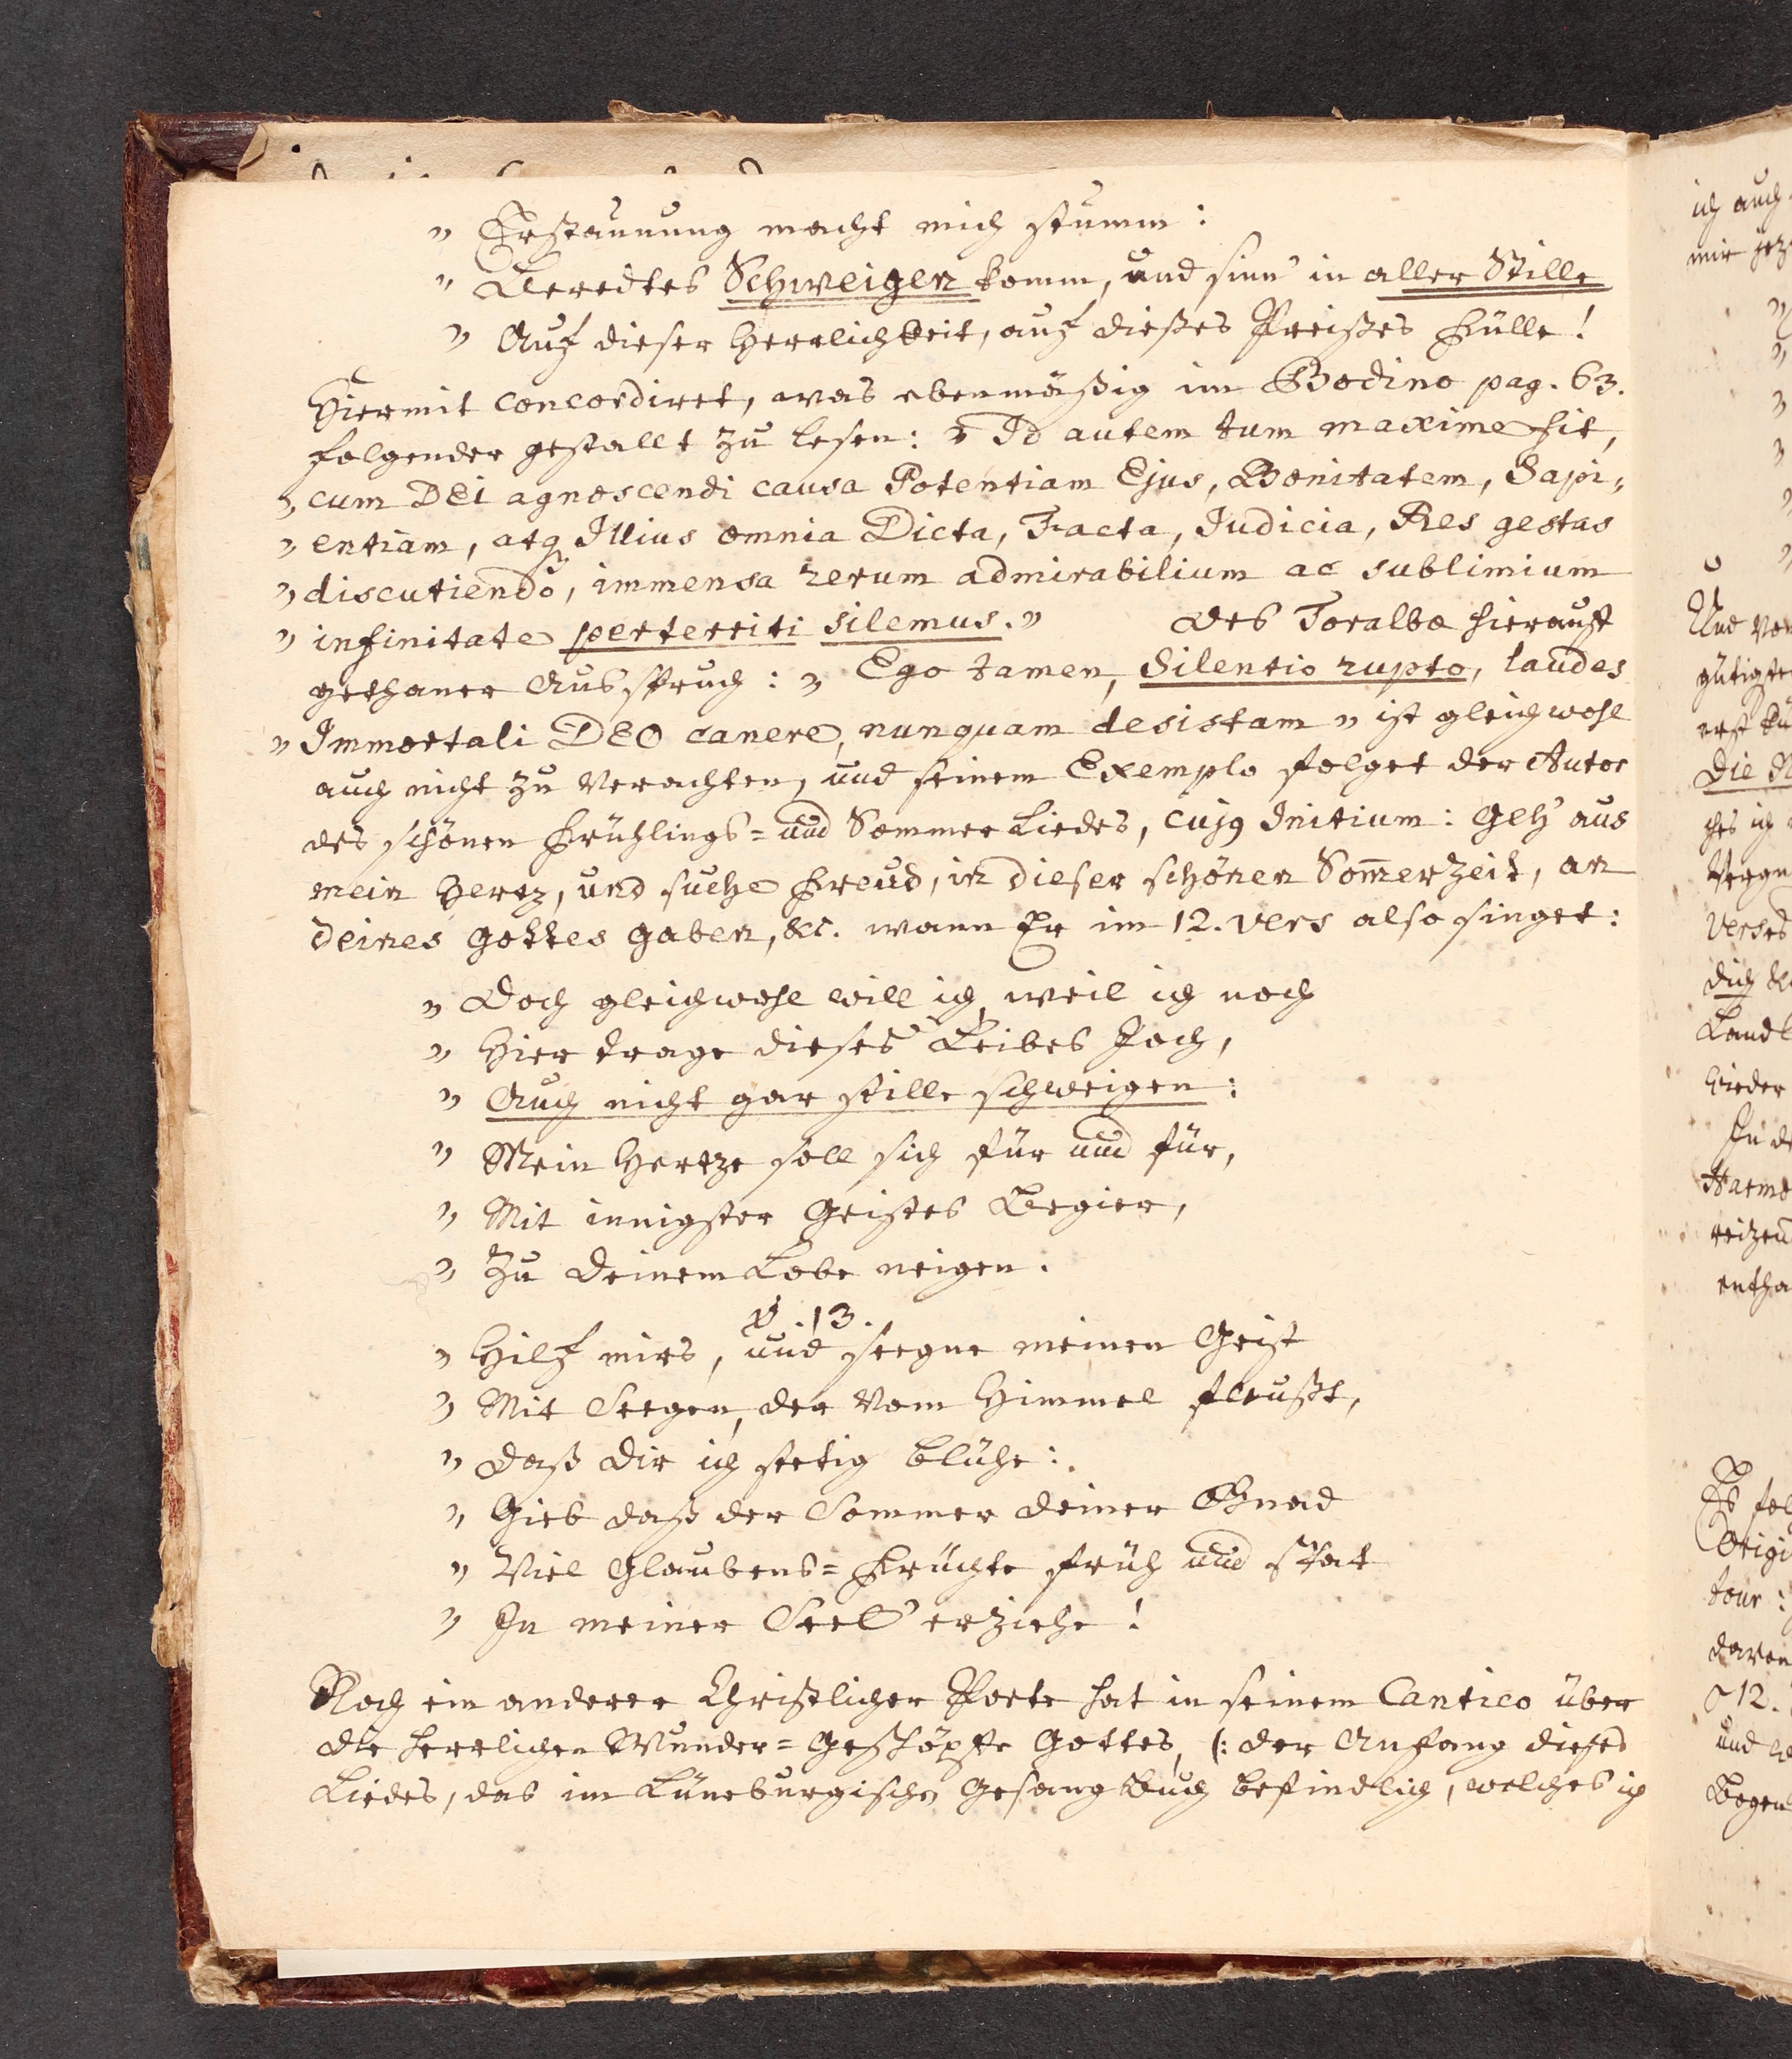 „ Erstaunung macht mich stumm:
„ Beredtes Schweigen komm, und sinn' in aller Stille
„ Auf dieser Herrlichkeit, auf dießes Preißes Fülle!
Hiermit concordiret, was ebenmäßig im Bodino pag. 63.
folgender gestallt zu lesen: „ Id autem tum maxime fit,
„ cum DEi agnoscendi causa Potentiam Ejus, Bonitatem, Sapi„
„ entiam, atq Illius omnia Dicta, Facta, Judicia, Res gestas
„ discutiendo, immensa rerum admirabilium ac sublimium
„ infinitate perterriti silemus. „ Des Toralbæ hierauff
gethaner Ausspruch: „ Ego tamen, Silentio rupto, laudes
„ Immortali DEO canere, nunquam desistam „ ist gleichwohl
auch nicht zu verachten, und seinem Exemplo folget der Autor
des schönen Frühlings= und Sommer Liedes, cujꝰ Initium: Geh' aus
mein Hertz, und suche Freud, in dieser schönen Som̅erzeit, an
deines Gottes Gaben, &c. wann Er im 12. Vers also singet:
„ Doch gleichwohl will ich, weil ich noch
„ Hier trage dieses Leibes Joch,
„ Auch nicht gar stille schweigen:
„ Mein Hertze soll sich für und für,
„ Mit innigster Geistes Begier,
„ Zu Deinem Lobe neigen.
V. 13.
„ Hilf mirs, und seegne meinen Geist
„ Mit Seegen, der vom Himmel fleußt,
„ Daß Dir ich stetig blühe:
„ Gieb daß der Sommer deiner Gnad
„ Viel Glaubens= Früchte früh und spat
„ In meiner Seel' erziehe!
Noch ein anderer Christlicher Poete hat in seinem Cantico über
die herrlichen Wunder= Geschöpffe Gottes, (: der Anfang dieses
Liedes, das im Lüneburgischen Gesang Buch befindlich, welches ich